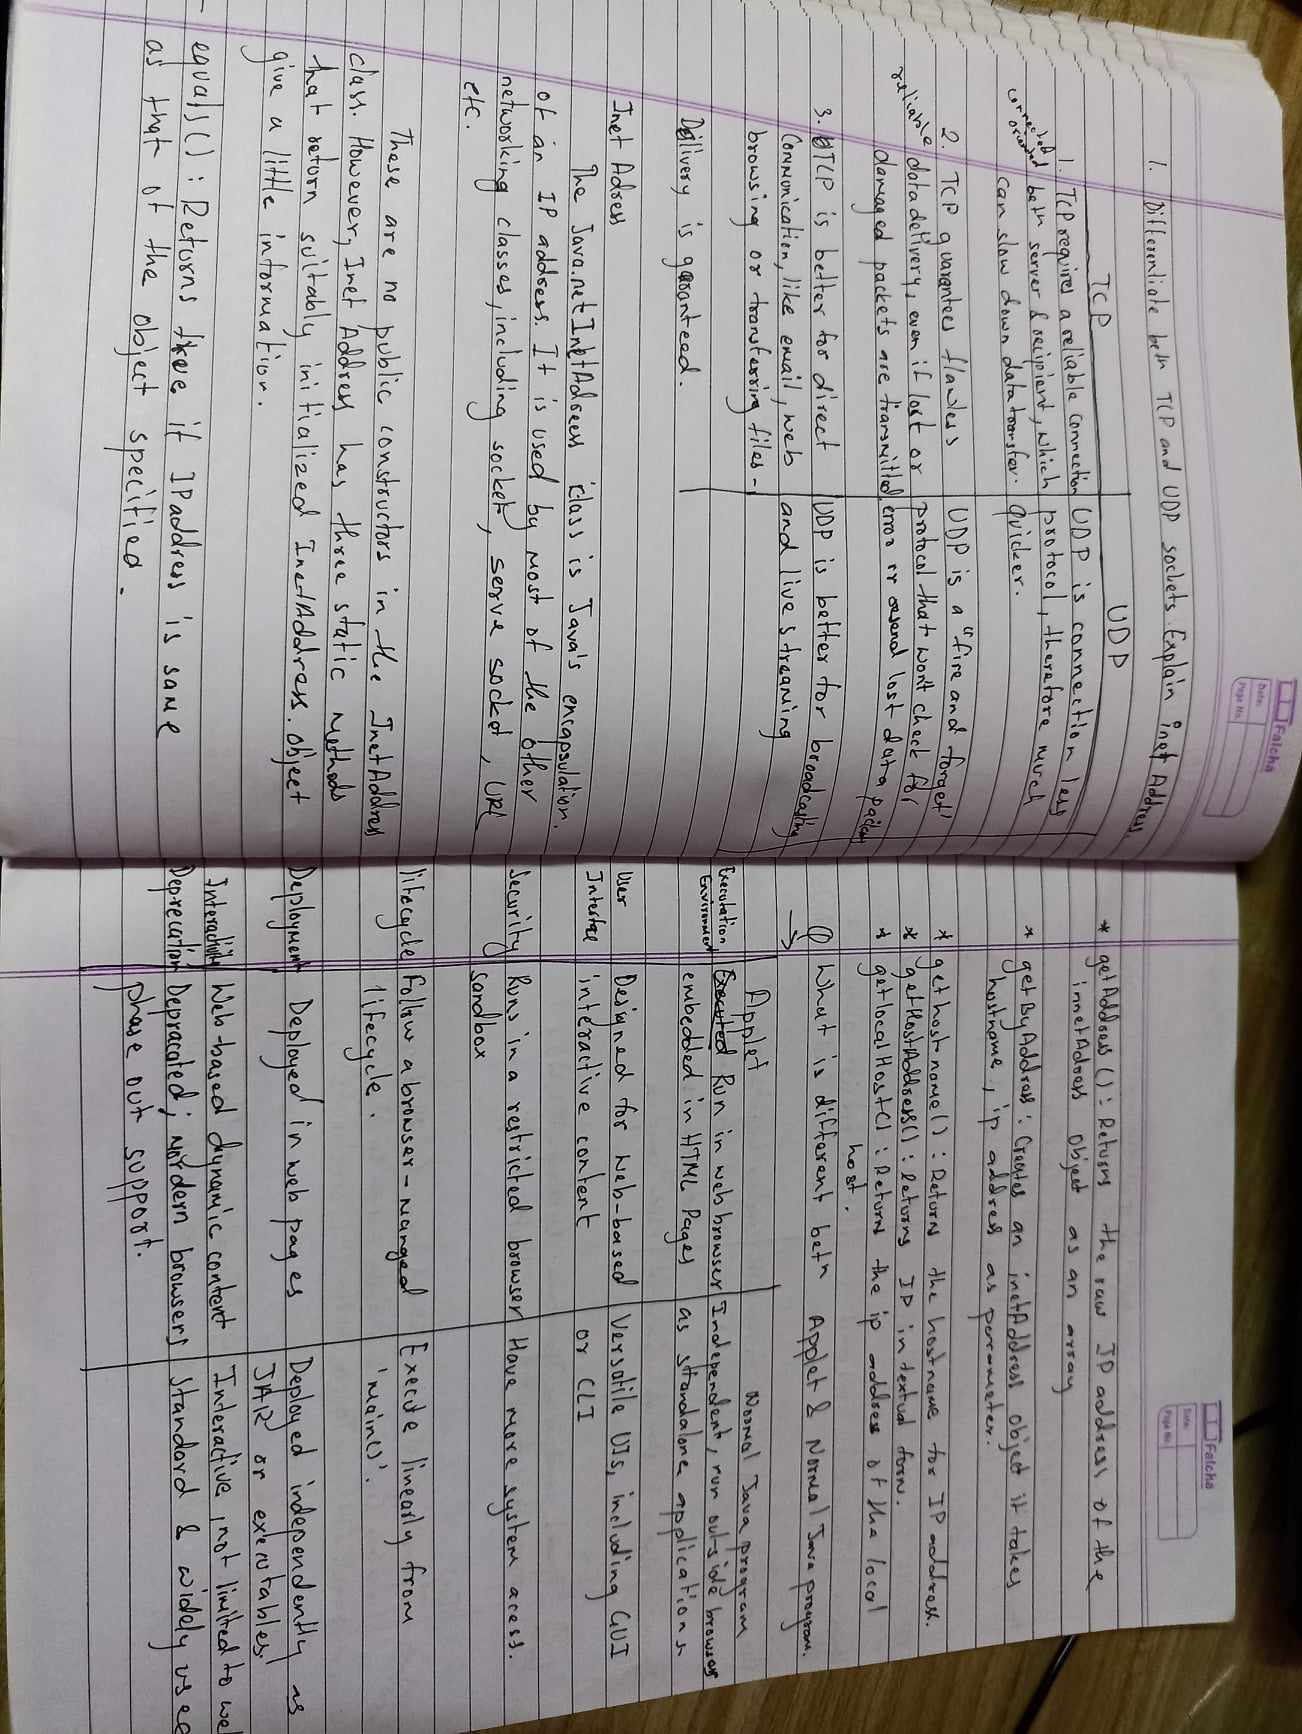 Falcha
Date:
Page No.
1. Differentiate betn TCP and UDP sockets. Explain inet Address
TCP
UDP
1. TCP requires a reliable connection
connected oriented
betn server & recipient, which
can slow down data transfer.
UDP is connection less
protocol, therefore much
quicker.
2. TCP guarantees flawless
reliable data delivery, even if lost or
damaged packets are transmitted
UDP is a "fire and forget"
protocol that won't check for
error or resend lost data packets
3. TCP is better for direct
communication, like email, web
browsing or transferring files -
UDP is better for broadcasting
and live streaming
Delivery is garanteed.
Inet Adress
The Java.net InetAdrees class is Java's encapsulation.
of an IP address. It is used by most of the other
networking classes, including socket, serve socked, URL
etc.
These are no public constructors in the InetAddress
class. However, Inet Address has three static methods
that return suitably initialized InetAddress. object
give a little information.
equals() : Returns true if IP address is same
as that of the object specified.
Falcha
Date:
Page No.
* getAddress() : Returns the raw IP address of the
innetAddress object as an array
* getByAddress : Creates an inetAddress object it takes
hostname, ip address as parameter.
* gethostname() : Return the hostname for IP address.
* getHostAddress() : Returns IP in textual form.
* getlocalHost() : Return the ip address of the local
host.
Q What is different betn Applet & Normal Java program.
→
Applet
Normal Java program
Executation
Environment
Run in web browser
embedded in HTML Pages
Independent, run outside browser
as standalone applications
User
Interface
Designed for web-based
interactive content
Versatile UIs, including GUI
or CLI
Security
Runs in a restricted browser
sandbox
Have more system acess.
lifecycle
Follow a browser-managed
lifecycle.
Execute linearly from
'main()'.
Deployment
Deployed in web pages
Deployed independently as
JAR or executables.
Interactivity
Web-based dynamic content
Interactive, not limited to we
Deprecation
Depracated; mordern browsers
phase out support.
standard & widely used